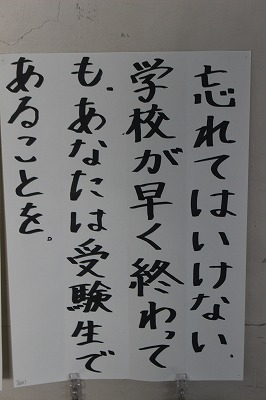 忘れてはいけない.
学校が早く終わって
も、あなたは受験生で
あることを。